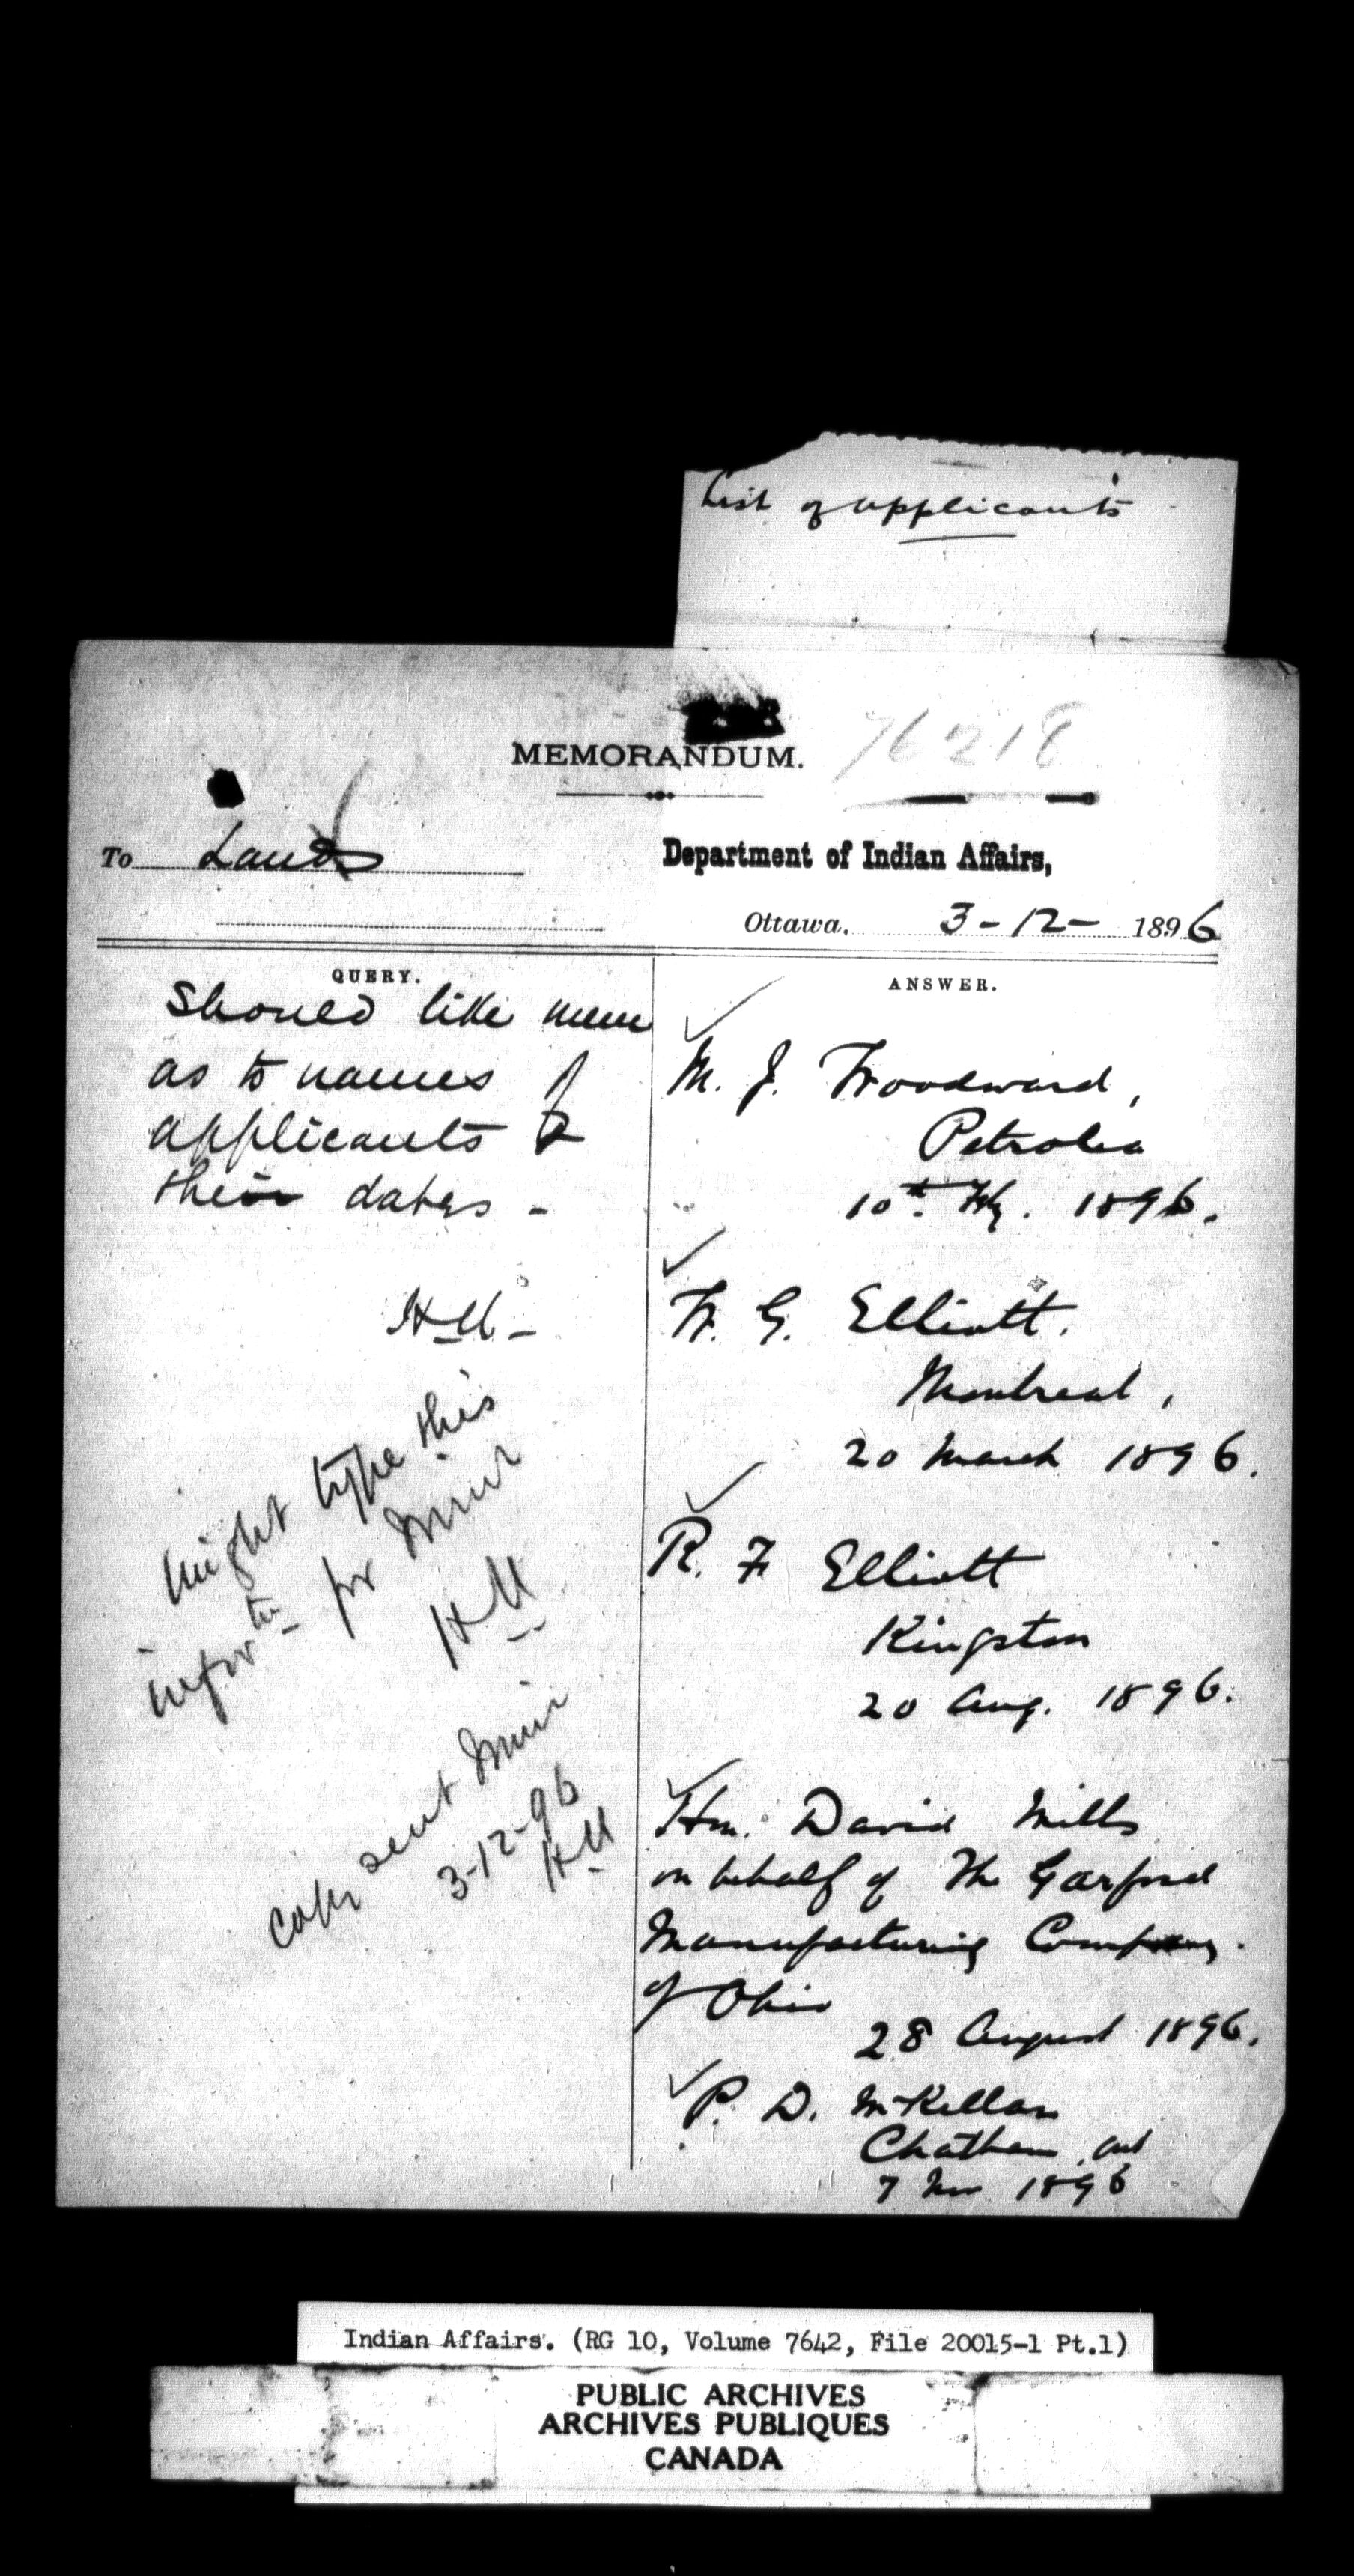 List of applicants
76218
MEMORANDUM.
To Lands
Department of Indian Affairs,
Ottawa, 3-12- 1896
QUERY.
Should like mem
as to names of
applicants &
their dates -
HM -
might type this
infor tn for Muir
HM
copy sent Muir
3-12-96
HM
ANSWER.
M. J. Woodward,
Petrolea
10th Fby. 1896.
W. G. Elliott.
Montreal,
20 March 1896.
R. F Elliott
Kingston
20 Aug. 1896.
Hon. David Mills
on behalf of The Garford
Manufacturing Company.
of Ohio
28 August 1896.
P. D. McKellar
Chatham, Ont
7 Nov 1896
Indian Affairs. (RG 10, Volume 7642, File 20015-1 Pt.1)
PUBLIC ARCHIVES
ARCHIVES PUBLIQUES
CANADA